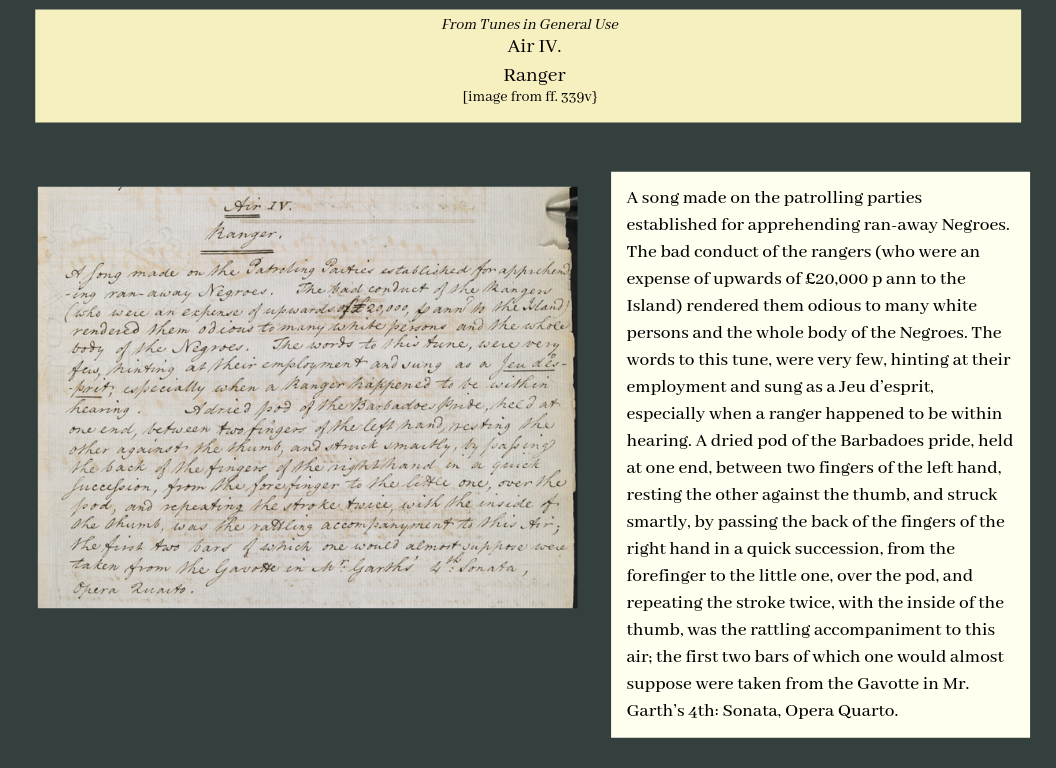 From Tunes in General Use
Air IV.
Ranger
[image from ff. 339v}
Air IV.
Ranger.
A Song made on the Patroling Parties established for apprehend
-ing ran-away Negroes. The bad conduct of the Rangers
(who were an expense of upwards of £20,000, p ann to the Island)
rendered them odious to many white persons and the whole
body of the Negroes. The words to this tune, were very
few, hinting at their employment and sung as a Jeu d'es-
-prit; especially when a Ranger happened to be within
hearing. A dried pod of the Barbadoes Pride, held at
one end, between two fingers of the left hand, resting the
other against the thumb, and struck smartly, by passing
the back of the fingers of the right hand in a quick
succession, from the forefinger to the little one, over the
pod, and repeating the stroke twice, with the inside of
the thumb, was the rattling accompanyment to this Air;
the first two bars of which one would almost suppose were
taken from the Gavotte in Mr. Garth's 4th: Sonata,
Opera Quarto.
A song made on the patrolling parties
established for apprehending ran-away Negroes.
The bad conduct of the rangers (who were an
expense of upwards of £20,000 p ann to the
Island) rendered them odious to many white
persons and the whole body of the Negroes. The
words to this tune, were very few, hinting at their
employment and sung as a Jeu d'esprit,
especially when a ranger happened to be within
hearing. A dried pod of the Barbados pride, held
at one end, between two fingers of the left hand,
resting the other against the thumb, and struck
smartly, by passing the back of the fingers of the
right hand in a quick succession, from the
forefinger to the little one, over the pod, and
repeating the stroke twice, with the inside of the
thumb, was the rattling accompaniment to this
air; the first two bars of which one would almost
suppose were taken from the Gavotte in Mr.
Garth's 4th: Sonata, Opera Quarto.